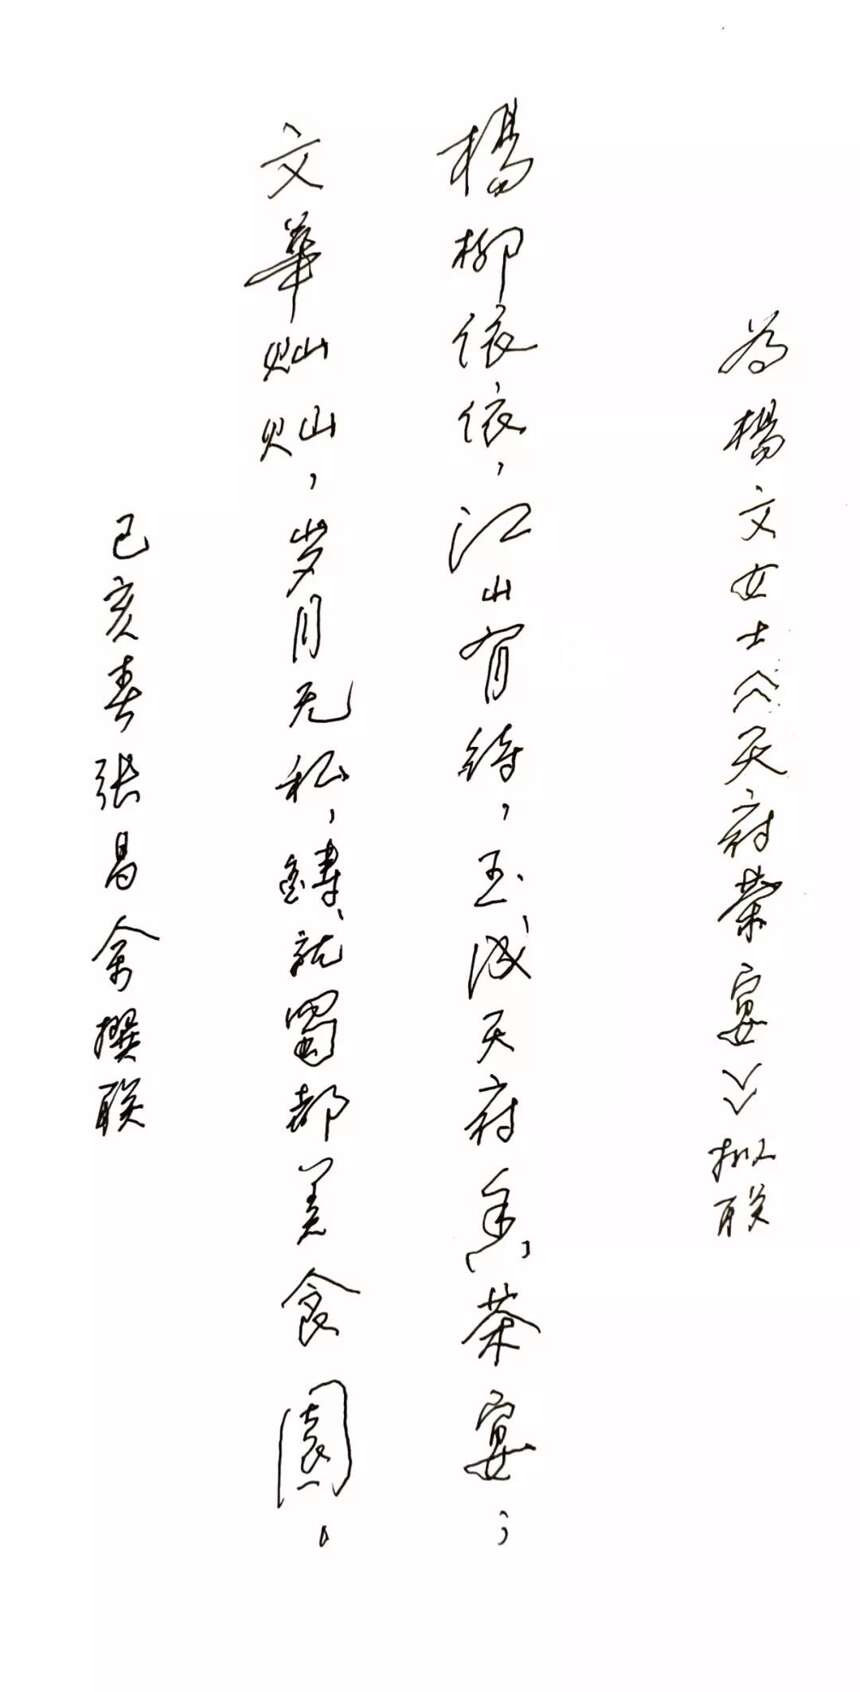 為楊文女士《天府荣宴》拟联
楊柳依依，江山有待，玉成天府香茶宴；
文華灿灿，岁月无私，鑄就蜀都美食園。
己亥春张昌余撰联